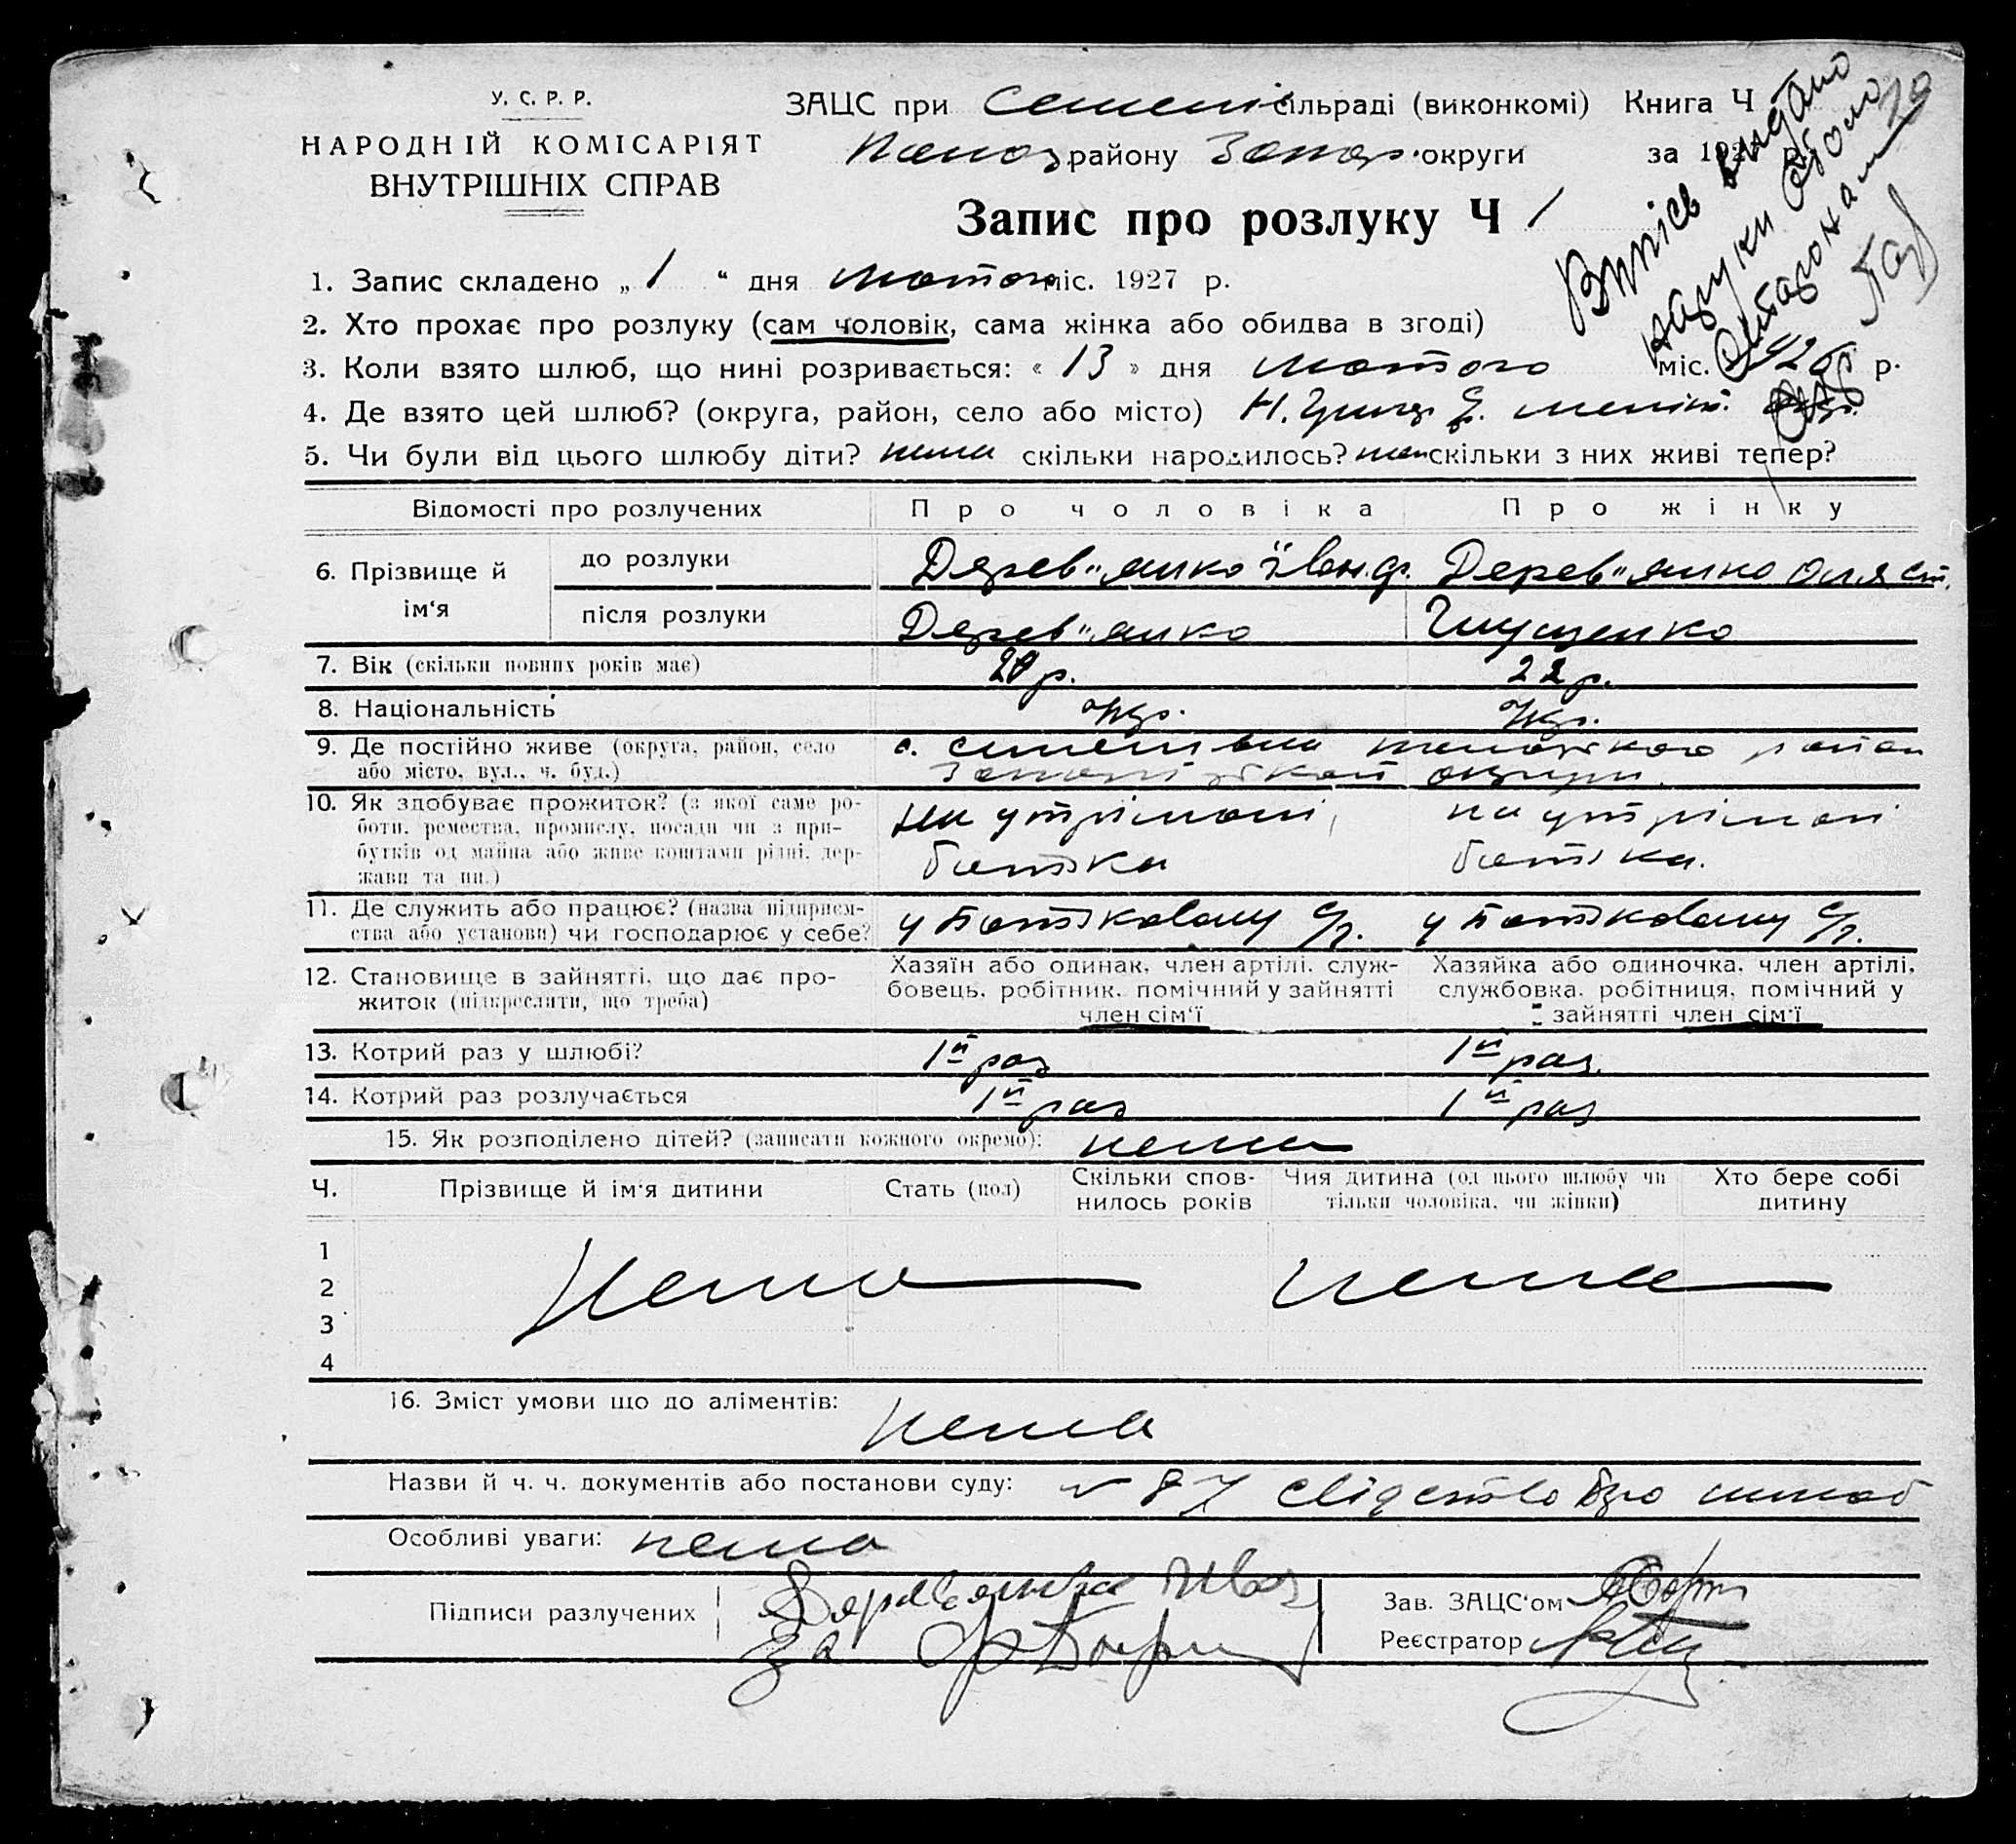 У. С. Р. Р.
НАРОДНІЙ КОМІСАРІЯТ
ВНУТРІШНІХ СПРАВ
ЗАЦС при сільраді (виконкомі) Книга Ч
району Запор. округи за 192
Запис про розлуку Ч 1
Випісь видано
на руки
1. Запис складено „ 1 “ дня лютого міс. 1927 р.
2. Хто прохає про розлуку (сам чоловік, сама жінка або обидва в згоді)
3. Коли взято шлюб, що нині розривається: « 13 » дня лютого міс. 1926 р.
4. Де взято цей шлюб? (округа, район, село або місто)
5. Чи були від цього шлюбу діти? нема скільки народилось? скільки з них живі тепер?
Відомості про розлучених Про чоловіка Про жінку
6. Прізвище й ім‘я
до розлуки Дерев"янко Іван.ф. Дерев"янко Оля Ст.
після розлуки Дерев"янко Глущенко
7. Вік (скільки повних років має) р. 22 р.
8. Національність Укр. Укр.
9. Де постійно живе (округа, район, село або місто, вул., ч. буд.) с. район
округи.
10. Як здобуває прожиток? (з якої саме роботи, ремества, промислу, посади чи з прибутків од майна або живе коштами рідні, держави та ин.)
на утрімані батька
на утрімані батька.
11. Де служить або працює? (назва підприємства або установи) чи господарює у себе? у батьковому с/г. у батьковому с/г.
12. Становище в зайнятті, що дає прожиток (підкреслити, що треба)
Хазяїн або одинак, член артілі, службовець, робітник, помічний у зайнятті член сім‘ї
Хазяйка або одиночка, член артілі, службовка, робітниця, помічний у зайнятті член сім‘ї
13. Котрий раз у шлюбі? 1й раз 1й раз.
14. Котрий раз розлучається 1й раз 1й раз
15. Як розподілено дітей? (записати кожного окремо): нема
Ч. Прізвище й ім‘я дитини Стать (пол) Скільки сповнилось років Чия дитина (од цього шлюбу чи тільки чоловіка, чи жінки) Хто бере собі дитину
1
2 Нема нема
3
4
16. Зміст умови що до аліментів: нема
Назви й ч. ч. документів або постанови суду: № 87 свідетство про шлюб
Особливі уваги: нема
Підписи разлучених
за
Зав. ЗАЦС‘ом
Реєстратор